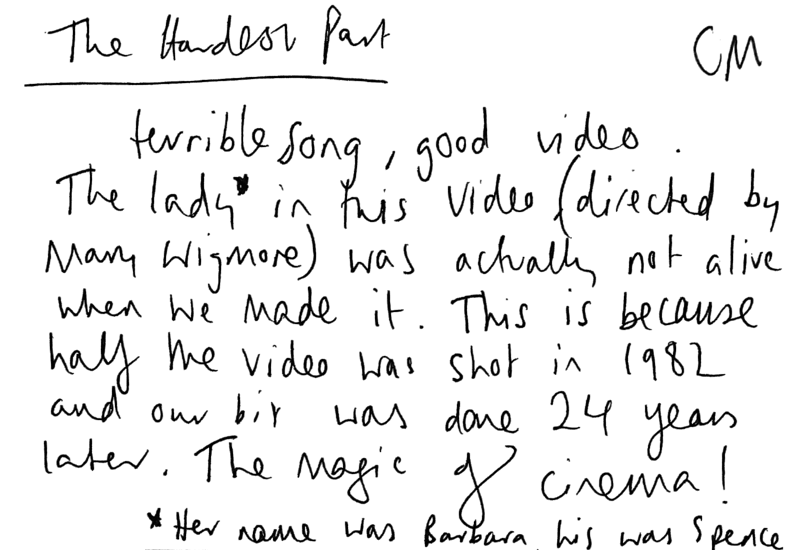 The Hardest Part
CM
terrible song, good video.
The lady* in this video (directed by
Mary Wigmore) was actually not alive
when we made it. This is because
half the video was shot in 1982
and our bit was done 24 years
later. The magic of cinema!
* Her name was Barbara, his was Spence